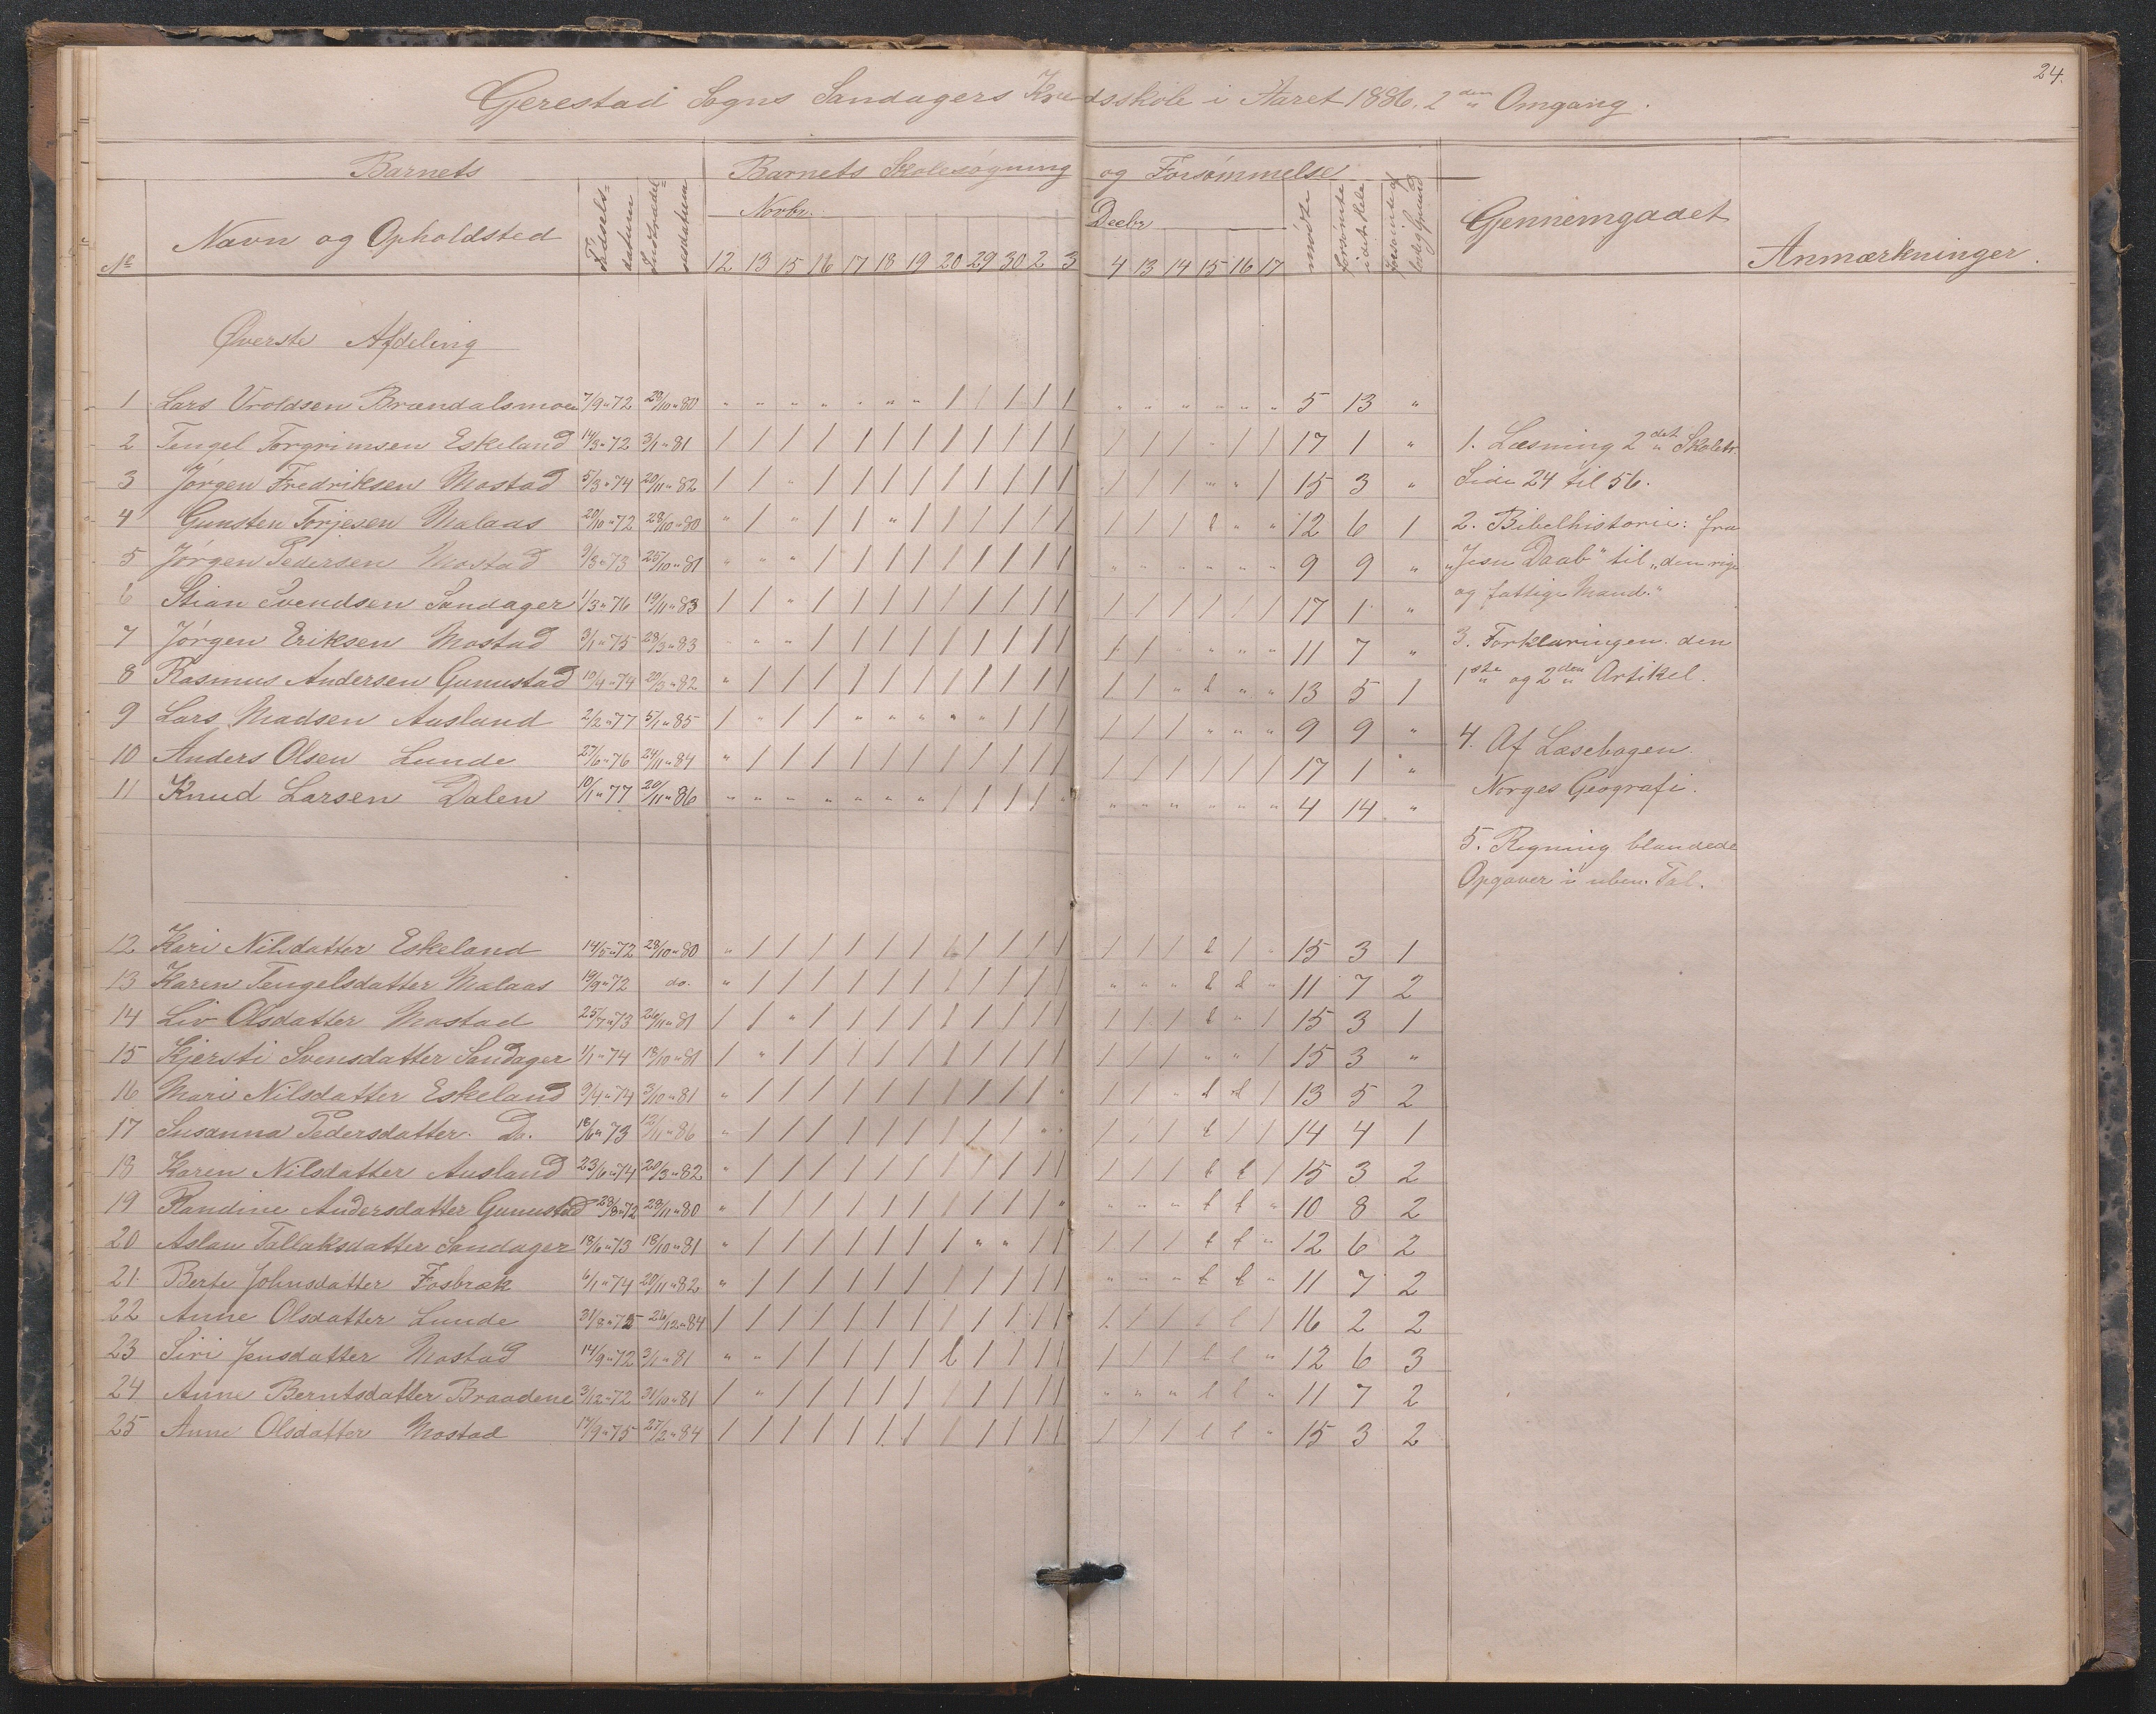 24.
Gjerestad Sogns Sandagers Kredsskole i Aaret 1886, 2den Omgang.
Barnets Barnets Skolesøgning og Forsømmelse
No Navn og Opholdsted Fødselsdatum Indtrædelsesdatum Novbr. Decbr. mødte forsømte i det Hele forsømte af lovlig Grund Gjennemgaaet Anmærkninger.
12 13 15 16 17 18 19 20 29 30 2 3 4 13 14 15 16 17
Øverste Afdeling
1 Lars Vroldsen Brændalsmoen 7/9 " 72 28/10 " 80 " " " " " " " " / / / / / " " " " " " 5 13 "
2 Tengel Torgrimsen Eskeland 14/3 " 72 3/1 " 81 / / / / / / / / / / / / / / / " / / 17 1 "
3 Jørgen Fredriksen Mostad 5/3 " 74 20/11 " 82 / / " / / / / / / / / / / / / " " / 15 3 "
4 Gunsten Torjesen Malaas 20/10 " 72 28/10 " 80 " / " / / " / / / / / / / / / l " " 12 6 1
5 Jørgen Pedersen Mostad 9/3 " 73 25/10 " 81 " " " / / / / / / / / / " " " " " " 9 9 "
6 Stian Svendsen Sandager 1/3 " 76 19/11 " 83 / / " / / / / / / / / / / / / / / / 17 1 "
7 Jørgen Eriksen Mostad 3/1 " 75 28/3 " 83 " " " / / / / / / / / / / / " " " " 11 7 "
8 Rasmus Andersen Gunustad 10/4 " 74 20/3 " 82 " / / / / / / / / / / / / / " l " " 13 5 1
9 Lars Madsen Ausland 2/2 " 77 5/1 " 85 / " / / " " " " " / / / / / / " " " 9 9 "
10 Anders Olsen Lunde 27/6 " 76 24/11 " 84 " / / / / / / / / / / / / / / / / / 17 1 "
11 Knud Larsen Dalen 10/1 " 77 20/11 " 86 " " " " " " " / / / / " " " " " " " 4 14 "
12 Kari Nilsdatter Eskeland 14/5 " 72 28/10 " 80 " / / / / / / / / / / / / / / l / " 15 3 1
13 Karen Tengelsdatter Malaas 19/9 " 72 do. " / / / / / / / / / / / " " " l l " 11 7 2
14 Liv Olsdatter Mostad 25/7 " 73 26/11 " 81 / / " / / / / / / / / / / / / l " / 15 3 1
15 Kjersti Svensdatter Sandager 1/1 " 74 18/10 " 81 / " / / / / / / / / / / / / / " " / 15 3 "
16 Mari Nilsdatter Eskeland 9/4 " 74 3/10 " 81 " / / / / / / / / / / " / / " l l / 13 5 2
17 Susanna Pedersdatter. Do. 18/6 " 73 12/11 " 86 " / / / / / / / / / " " / / / l / / 14 4 1
18 Karen Nilsdatter Ausland 23/6 " 74 20/3 " 82 " / / / / / / / / / / / / / / l l / 15 3 2
19 Randine Andersdatter Gunustad 28/8 " 72 28/11 " 80 " / / / / / / / / / / " " " " l l " 10 8 2
20 Aslau Tallaksdatter Sandager 18/6 " 73 18/10 " 81 " / / / / / / / " " / / / / / l l " 12 6 2
21 Berte Johnsdatter Fosbræk 6/1 " 74 20/11 " 82 " / / / / / / / / / / / " " " l l " 11 7 2
22 Anne Olsdatter Lunde 31/8 " 75 26/12 " 84 / / / / / / / / / / / / / / / l l / 16 2 2
23 Siri Jensdatter Mostad 14/9 " 72 3/1 " 81 " " / / / / / l / / / / / / / l l " 12 6 3
24 Anne Berntsdatter Braadene 3/12 " 72 31/10 " 81 / " / / / / / / / / / / " " " l l " 11 7 2
25 Anne Olsdatter Mostad 17/9 " 75 27/2 " 84 / / / / / / / / / / / / / / / l l " 15 3 2
1. Læsning 2det Skoletr.
Side 24 til 56.
2. Bibelhistorie: fra
"Jesu Daab" til "den rige
og fattige Mand."
3. Forklaringen den
1ste og 2den Artikel.
4. Af Læsebogen.
Norges Geografi.
5. Regning blandede
Opgaver i uben. Tal.